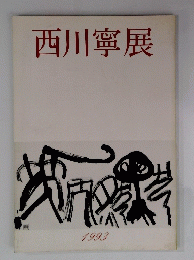 西川寧展
1993